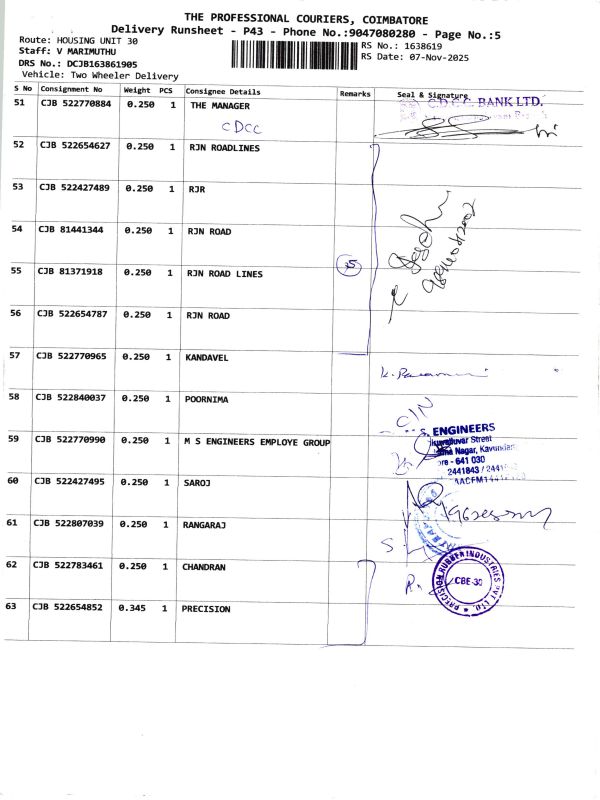 THE PROFESSIONAL COURIERS, COIMBATORE
Delivery Runsheet - P43 - Phone No.:9047080280 - Page No.:5
Route: HOUSING UNIT 30
RS No.: 1638619
Staff: V MARIMUTHU
RS Date: 07-Nov-2025
DRS No.: DCJB163861905
Vehicle: Two Wheeler Delivery
S No Consignment No Weight PCS Consignee Details Remarks Seal & Signature
51 CJB 522770884 0.250 1 THE MANAGER C.D.C.C. BANK LTD.
CDCC
52 CJB 522654627 0.250 1 RJN ROADLINES
53 CJB 522427489 0.250 1 RJR
54 CJB 81441344 0.250 1 RJN ROAD
55 CJB 81371918 0.250 1 RJN ROAD LINES 5
56 CJB 522654787 0.250 1 RJN ROAD
57 CJB 522770965 0.250 1 KANDAVEL
58 CJB 522840037 0.250 1 POORNIMA
59 CJB 522770990 0.250 1 M S ENGINEERS EMPLOYE GROUP
ENGINEERS
Street
Nagar,
- 641 030
2441843
60 CJB 522427495 0.250 1 SAROJ
61 CJB 522807039 0.250 1 RANGARAJ
62 CJB 522783461 0.250 1 CHANDRAN
63 CJB 522654852 0.345 1 PRECISION
PRECISION RUBBER INDUSTRIES PVT Ltd.
CBE-30